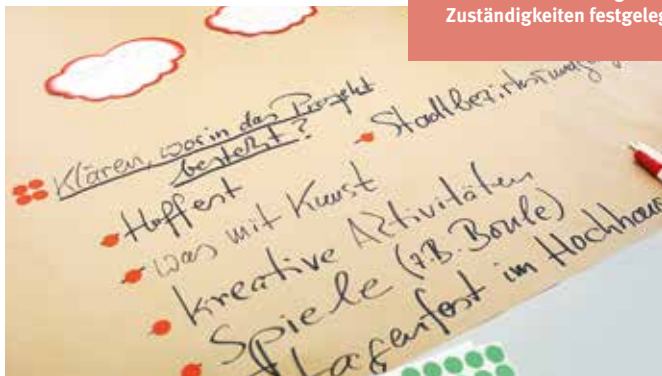 Zuständigkeiten festgeleg
Klären, worin das Projekt
besteht?
Hoffest
was mit Kunst
kreative Aktivitäten
Spiele (z.B. Boule)
im Hochhaus